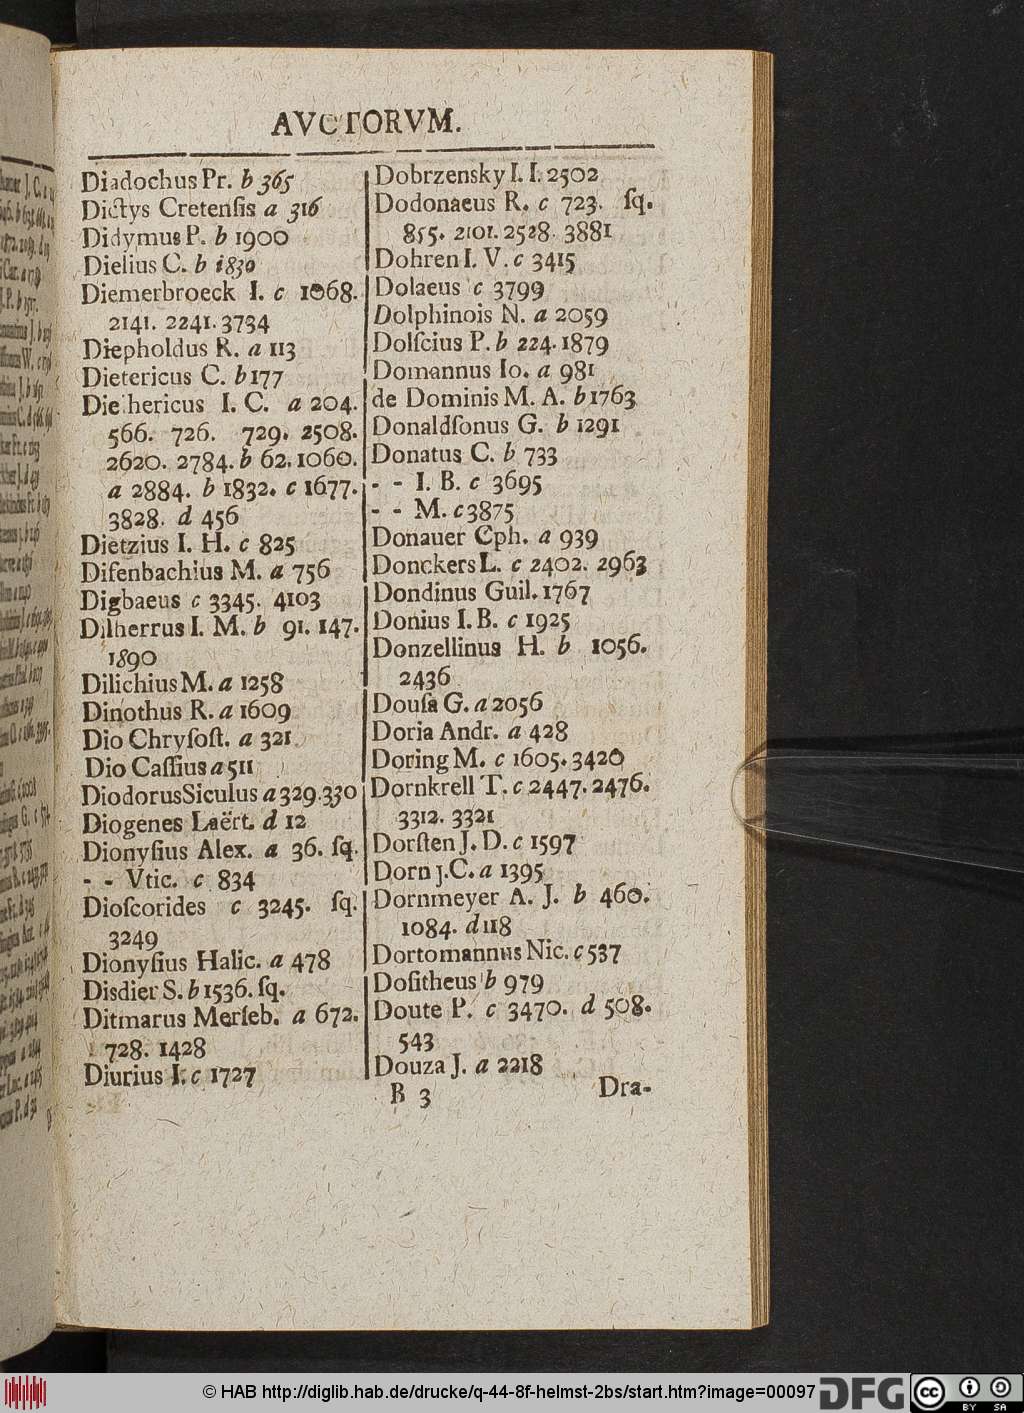 AVCTORVM.
Diadochus Pr. b 365
Dictys Cretenſis a 316
Didymus P. b 1900
Dielius C. b 1830
Diemerbroeck I. c 1068.
2141. 2241. 3734
Diepholdus R. a 113
Dietericus C. b 177
Diethericus I. C. a 204.
566. 726. 729. 2508.
2620. 2784. b 62. 1060.
a 2884. b 1832. c 1677.
3828. d 456
Dietzius I. H. c 825
Difenbachius M. a 756
Digbaeus c 3345. 4103
Dilherrus I. M. b 91. 147.
1890
Dilichius M. a 1258
Dinothus R. a 1609
Dio Chryſoſt. a 321
Dio Caſſius a 511
Diodorus Siculus a 329. 330
Diogenes Laërt. d 12
Dionyſius Alex. a 36. ſq.
- - Vtic. c 834
Dioſcorides c 3245. ſq.
3249
Dionyſius Halic. a 478
Disdier S. b 1536. ſq.
Ditmarus Merſeb. a 672.
728. 1428
Diurius I. c 1727
Dobrzensky I. I. 2502
Dodonaeus R. c 723. ſq.
855. 2101. 2528. 3881
Dohren I. V. c 3415
Dolaeus c 3799
Dolphinois N. a 2059
Dolſcius P. b 224. 1879
Domannus Io. a 981
de Dominis M. A. b 1763
Donaldſonus G. b 1291
Donatus C. b 733
- - I. B. c 3695
- - M. c 3875
Donauer Cph. a 939
Donckers L. c 2402. 2963
Dondinus Guil. 1767
Donius I. B. c 1925
Donzellinus H. b 1056.
2436
Douſa G. a 2056
Doria Andr. a 428
Doring M. c 1605. 3420
Dornkrell T. c 2447. 2476.
3312. 3321
Dorſten J. D. c 1597
Dorn J. C. a 1395
Dornmeyer A. J. b 460.
1084. d 118
Dortomannus Nic. c 537
Doſitheus b 979
Doute P. c 3470. d 508.
543
Douza J. a 2218
B 3
Dra-
© HAB http://diglib.hab.de/drucke/q-44-8f-helmst-2bs/start.htm?image=00097
DFG
cc
BY SA